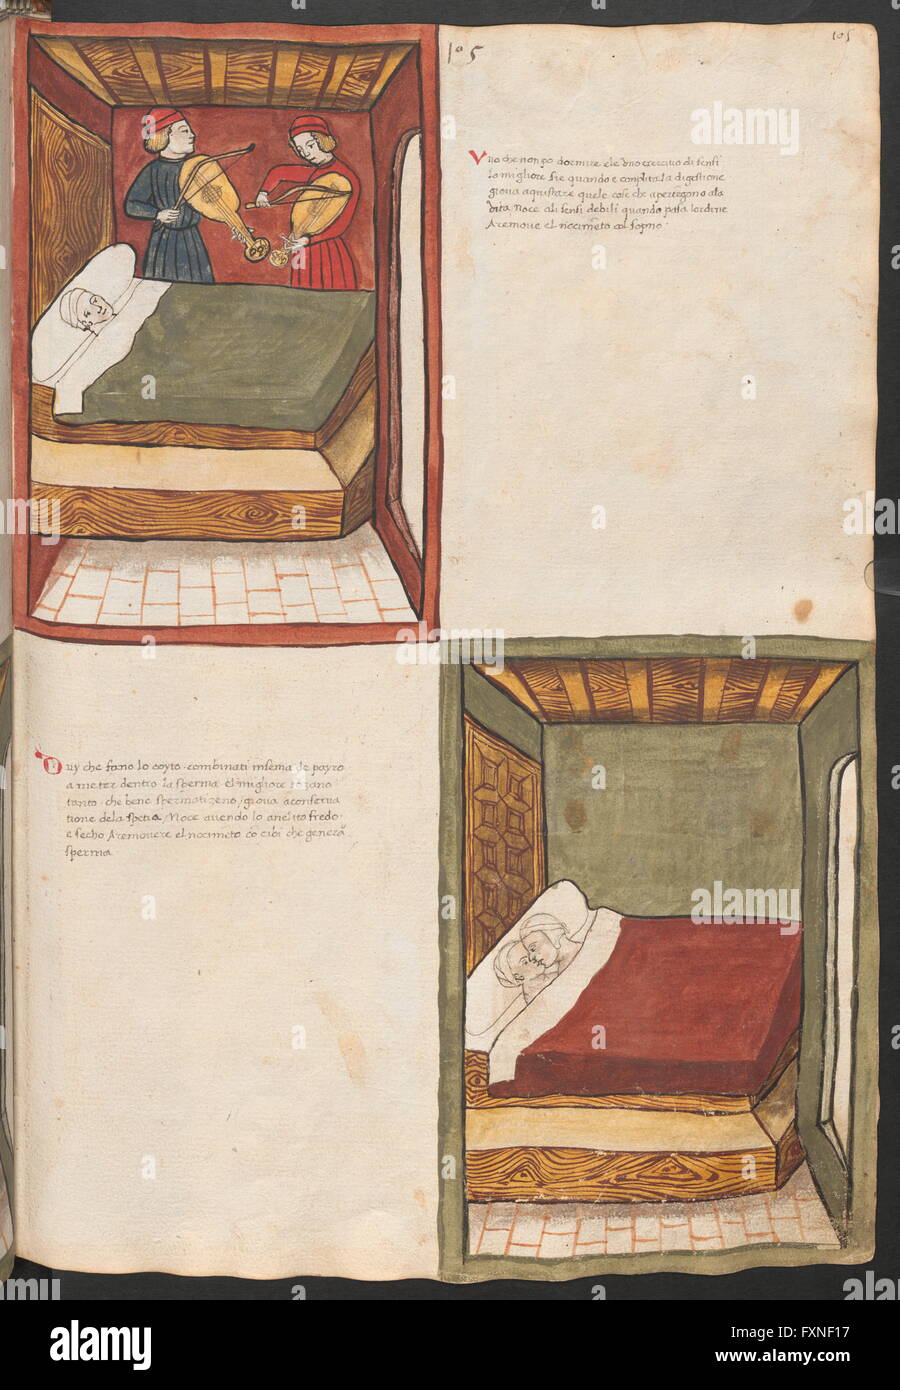 105
105
Uno che non po dormire ele uno exercitio di sensi
la migliore sie quando e conplita la digestione
giova aquistare quele cose che apertegono ala
vita. Noce ali sensi debili quando pasa lordine
Aremove el nocimēto col sopno
Duy che fano lo coyto. combinati insema de payro
a meter dentro la sperma. el migliore
tanto. che bene spermatizeno, giova a conserva
tione dela spetia. Noce avendo lo anelito fredo.
e secho Aremovere el nocimēto cō cibi che genera
sperma
alamy
Image ID: FXNF17
www.alamy.com